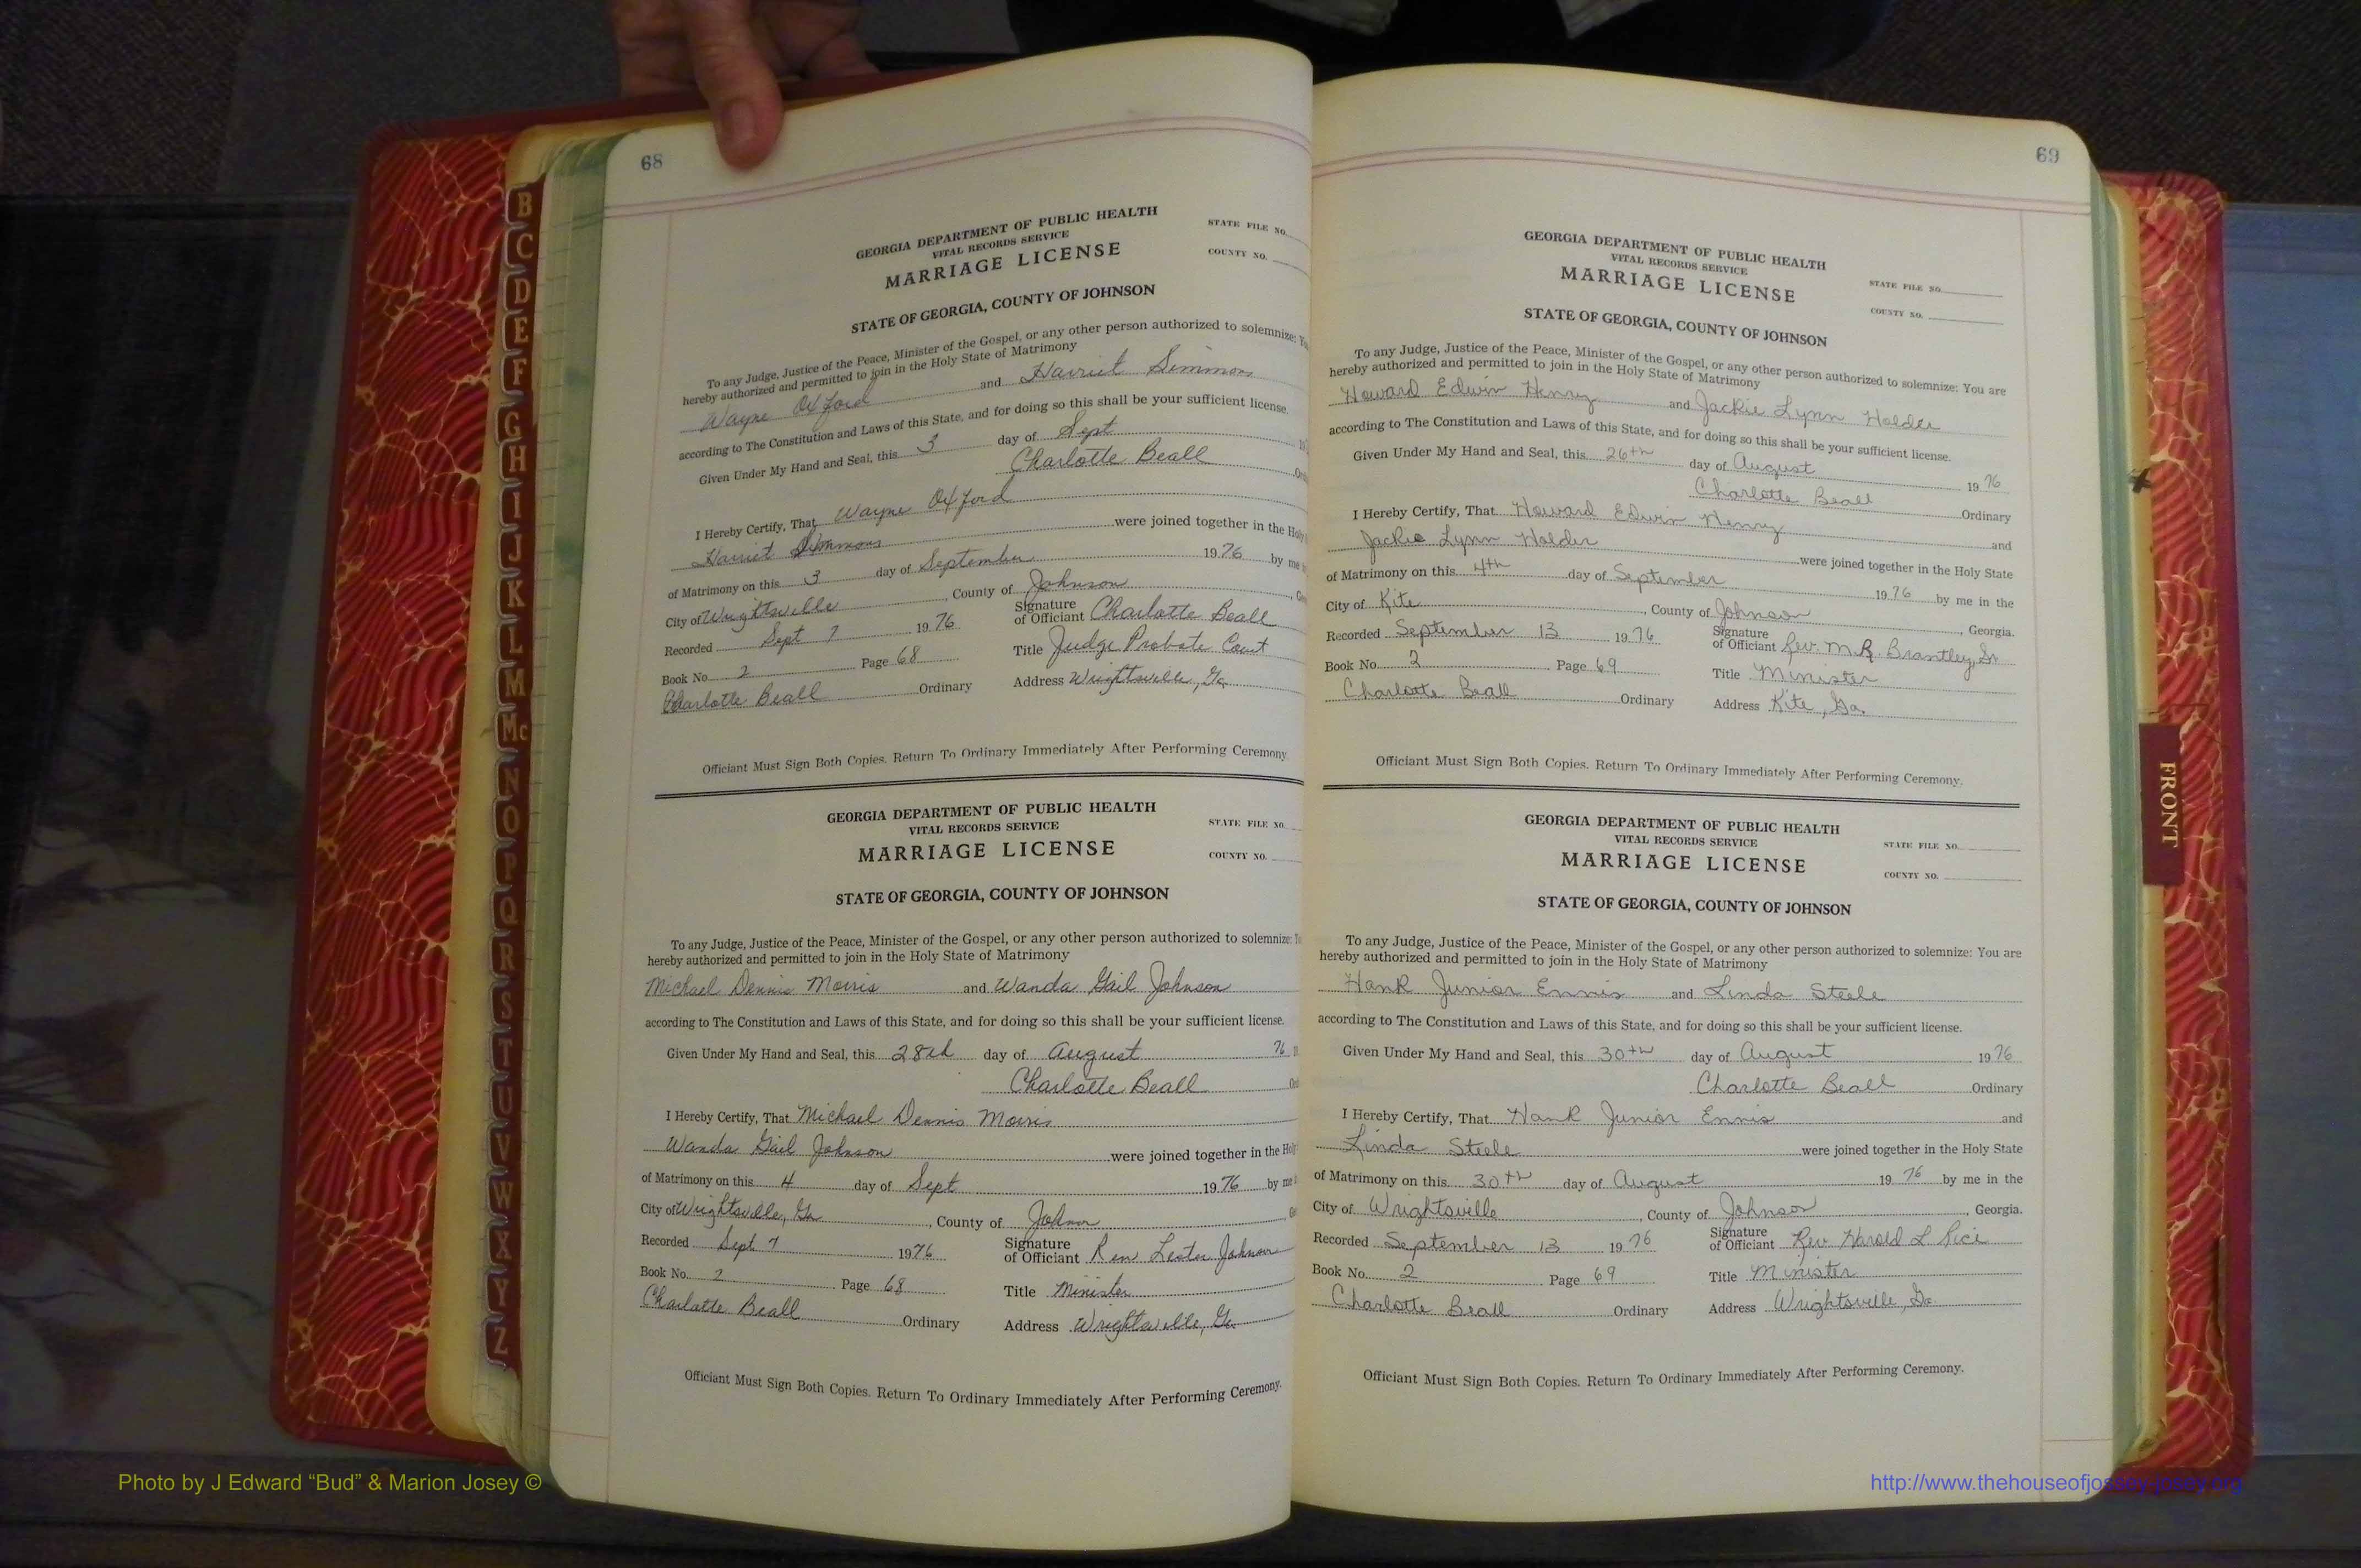 68
GEORGIA DEPARTMENT OF PUBLIC HEALTH
VITAL RECORDS SERVICE
MARRIAGE LICENSE
STATE FILE NO.
COUNTY NO.
STATE OF GEORGIA, COUNTY OF JOHNSON
To any Judge, Justice of the Peace, Minister of the Gospel, or any other person authorized to solemnize:
hereby authorized and permitted to join in the Holy State of Matrimony
Wayne Oxford and Harriet Simmons
according to The Constitution and Laws of this State, and for doing so this shall be your sufficient license.
Given Under My Hand and Seal, this 3 day of Sept
Charlotte Beall
I Hereby Certify, That Wayne Oxford
Harriet Simmons were joined together in the Holy
of Matrimony on this 3 day of September 1976 by me
City of Wrightsville, County of Johnson
Recorded Sept 7 1976 Signature of Officiant Charlotte Beall
Book No. 2 Page 68 Title Judge Probate Court
Charlotte Beall Ordinary Address Wrightsville, Ga.
Officiant Must Sign Both Copies. Return To Ordinary Immediately After Performing Ceremony
GEORGIA DEPARTMENT OF PUBLIC HEALTH
VITAL RECORDS SERVICE
MARRIAGE LICENSE
STATE FILE NO.
COUNTY NO.
STATE OF GEORGIA, COUNTY OF JOHNSON
To any Judge, Justice of the Peace, Minister of the Gospel, or any other person authorized to solemnize:
hereby authorized and permitted to join in the Holy State of Matrimony
Michael Dennis Morris and Wanda Gail Johnson
according to The Constitution and Laws of this State, and for doing so this shall be your sufficient license.
Given Under My Hand and Seal, this 28th day of August 76
Charlotte Beall
I Hereby Certify, That Michael Dennis Morris
Wanda Gail Johnson were joined together in the
of Matrimony on this 4 day of Sept 1976 by me
City of Wrightsville, Ga, County of
Recorded Sept 7 1976 Signature of Officiant Lester Johnson
Book No. 2 Page 68 Title Minister
Charlotte Beall Ordinary Address Wrightsville, Ga.
Officiant Must Sign Both Copies. Return To Ordinary Immediately After Performing Ceremony.
69
GEORGIA DEPARTMENT OF PUBLIC HEALTH
VITAL RECORDS SERVICE
MARRIAGE LICENSE
STATE FILE NO.
COUNTY NO.
STATE OF GEORGIA, COUNTY OF JOHNSON
To any Judge, Justice of the Peace, Minister of the Gospel, or any other person authorized to solemnize: You are
hereby authorized and permitted to join in the Holy State of Matrimony
Howard Edwin Henry and Jackie Lynn Holder
according to The Constitution and Laws of this State, and for doing so this shall be your sufficient license.
Given Under My Hand and Seal, this 26th day of August 1976
Charlotte Beall Ordinary
I Hereby Certify, That Howard Edwin Henry and
Jackie Lynn Holder were joined together in the Holy State
of Matrimony on this 4th day of September 1976 by me in the
City of Kite, County of Johnson, Georgia.
Recorded September 13 1976 Signature of Officiant Rev. M.R. Brantley, Sr
Book No. 2 Page 69 Title Minister
Charlotte Beall Ordinary Address Kite, Ga.
Officiant Must Sign Both Copies. Return To Ordinary Immediately After Performing Ceremony.
GEORGIA DEPARTMENT OF PUBLIC HEALTH
VITAL RECORDS SERVICE
MARRIAGE LICENSE
STATE FILE NO.
COUNTY NO.
STATE OF GEORGIA, COUNTY OF JOHNSON
To any Judge, Justice of the Peace, Minister of the Gospel, or any other person authorized to solemnize: You are
hereby authorized and permitted to join in the Holy State of Matrimony
Hank Junior Ennis and Linda Steele
according to The Constitution and Laws of this State, and for doing so this shall be your sufficient license.
Given Under My Hand and Seal, this 30th day of August 1976
Charlotte Beall Ordinary
I Hereby Certify, That Hank Junior Ennis and
Linda Steele were joined together in the Holy State
of Matrimony on this 30th day of August 1976 by me in the
City of Wrightsville, County of Johnson, Georgia.
Recorded September 13 1976 Signature of Officiant Rev. Harold L
Book No. 2 Page 69 Title Minister
Charlotte Beall Ordinary Address Wrightsville, Ga.
Officiant Must Sign Both Copies. Return To Ordinary Immediately After Performing Ceremony.
B
C
D
E
F
G
H
I
J
K
L
M
Mc
N
O
P
Q
R
S
T
U
V
W
X
Y
Z
FRONT
Photo by J Edward “Bud” & Marion Josey ©
http://www.thehouseofjossey-josey.org